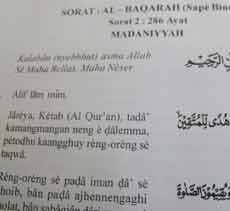 SORAT : AL – BAQARAH (Sapè Bin
Sorat 2 : 286 Ayat
MADANIYYAH
Kalabân (nyebbhut) asma Allah
Sè Maha Bellas, Maha Nèser
الرحيم
Alif lâm mîm.
Jârèya, Kètab (Al Qur'an), tadâ'
kamangmangan neng è dâlemma,
pètodhu kaangghuy rèng-orèng sè
taqwa.
هدى للمتقين
Rèng-orèng sè padâ iman dâ' sè
ghoib, bân padâ ajhennengaghi
يقيمون الصلوة